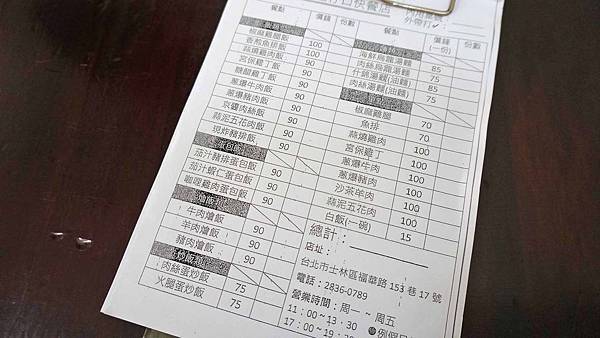 日快餐店
外帶打✓
餐點 價錢 份數
椒麻雞腿飯 100
香煎魚排飯 100
蒜燒雞肉飯 90
宮保雞丁飯 90
糖醋雞丁飯 90
蔥爆牛肉飯 90
蔥爆豬肉飯 90
京醬肉絲飯 90
蒜泥五花肉飯 90
現炸豬排飯 90
蛋包飯
茄汁豬排蛋包飯 90
茄汁蝦仁蛋包飯 90
咖哩雞肉蛋包飯 90
燴飯
牛肉燴飯 90
羊肉燴飯 90
豬肉燴飯 90
炒飯
肉絲蛋炒飯 75
火腿蛋炒飯 75
餐點 價錢(一份) 份數
海鮮烏龍湯麵 85
肉絲烏龍湯麵 75
什錦湯麵(油麵) 85
肉絲湯麵(油麵) 75
椒麻雞腿 70
魚排 70
蒜燒雞肉 100
宮保雞丁 100
蔥爆牛肉 100
蔥爆豬肉 100
沙茶羊肉 100
蒜泥五花肉 100
白飯(一碗) 15
總計：
店址：
台北市士林區福華路 153 巷 17 號
電話：2836-0789
營業時間：周一 ~ 周五
11：00 ~ 13：30 ●例假日
17：00 ~ 19：